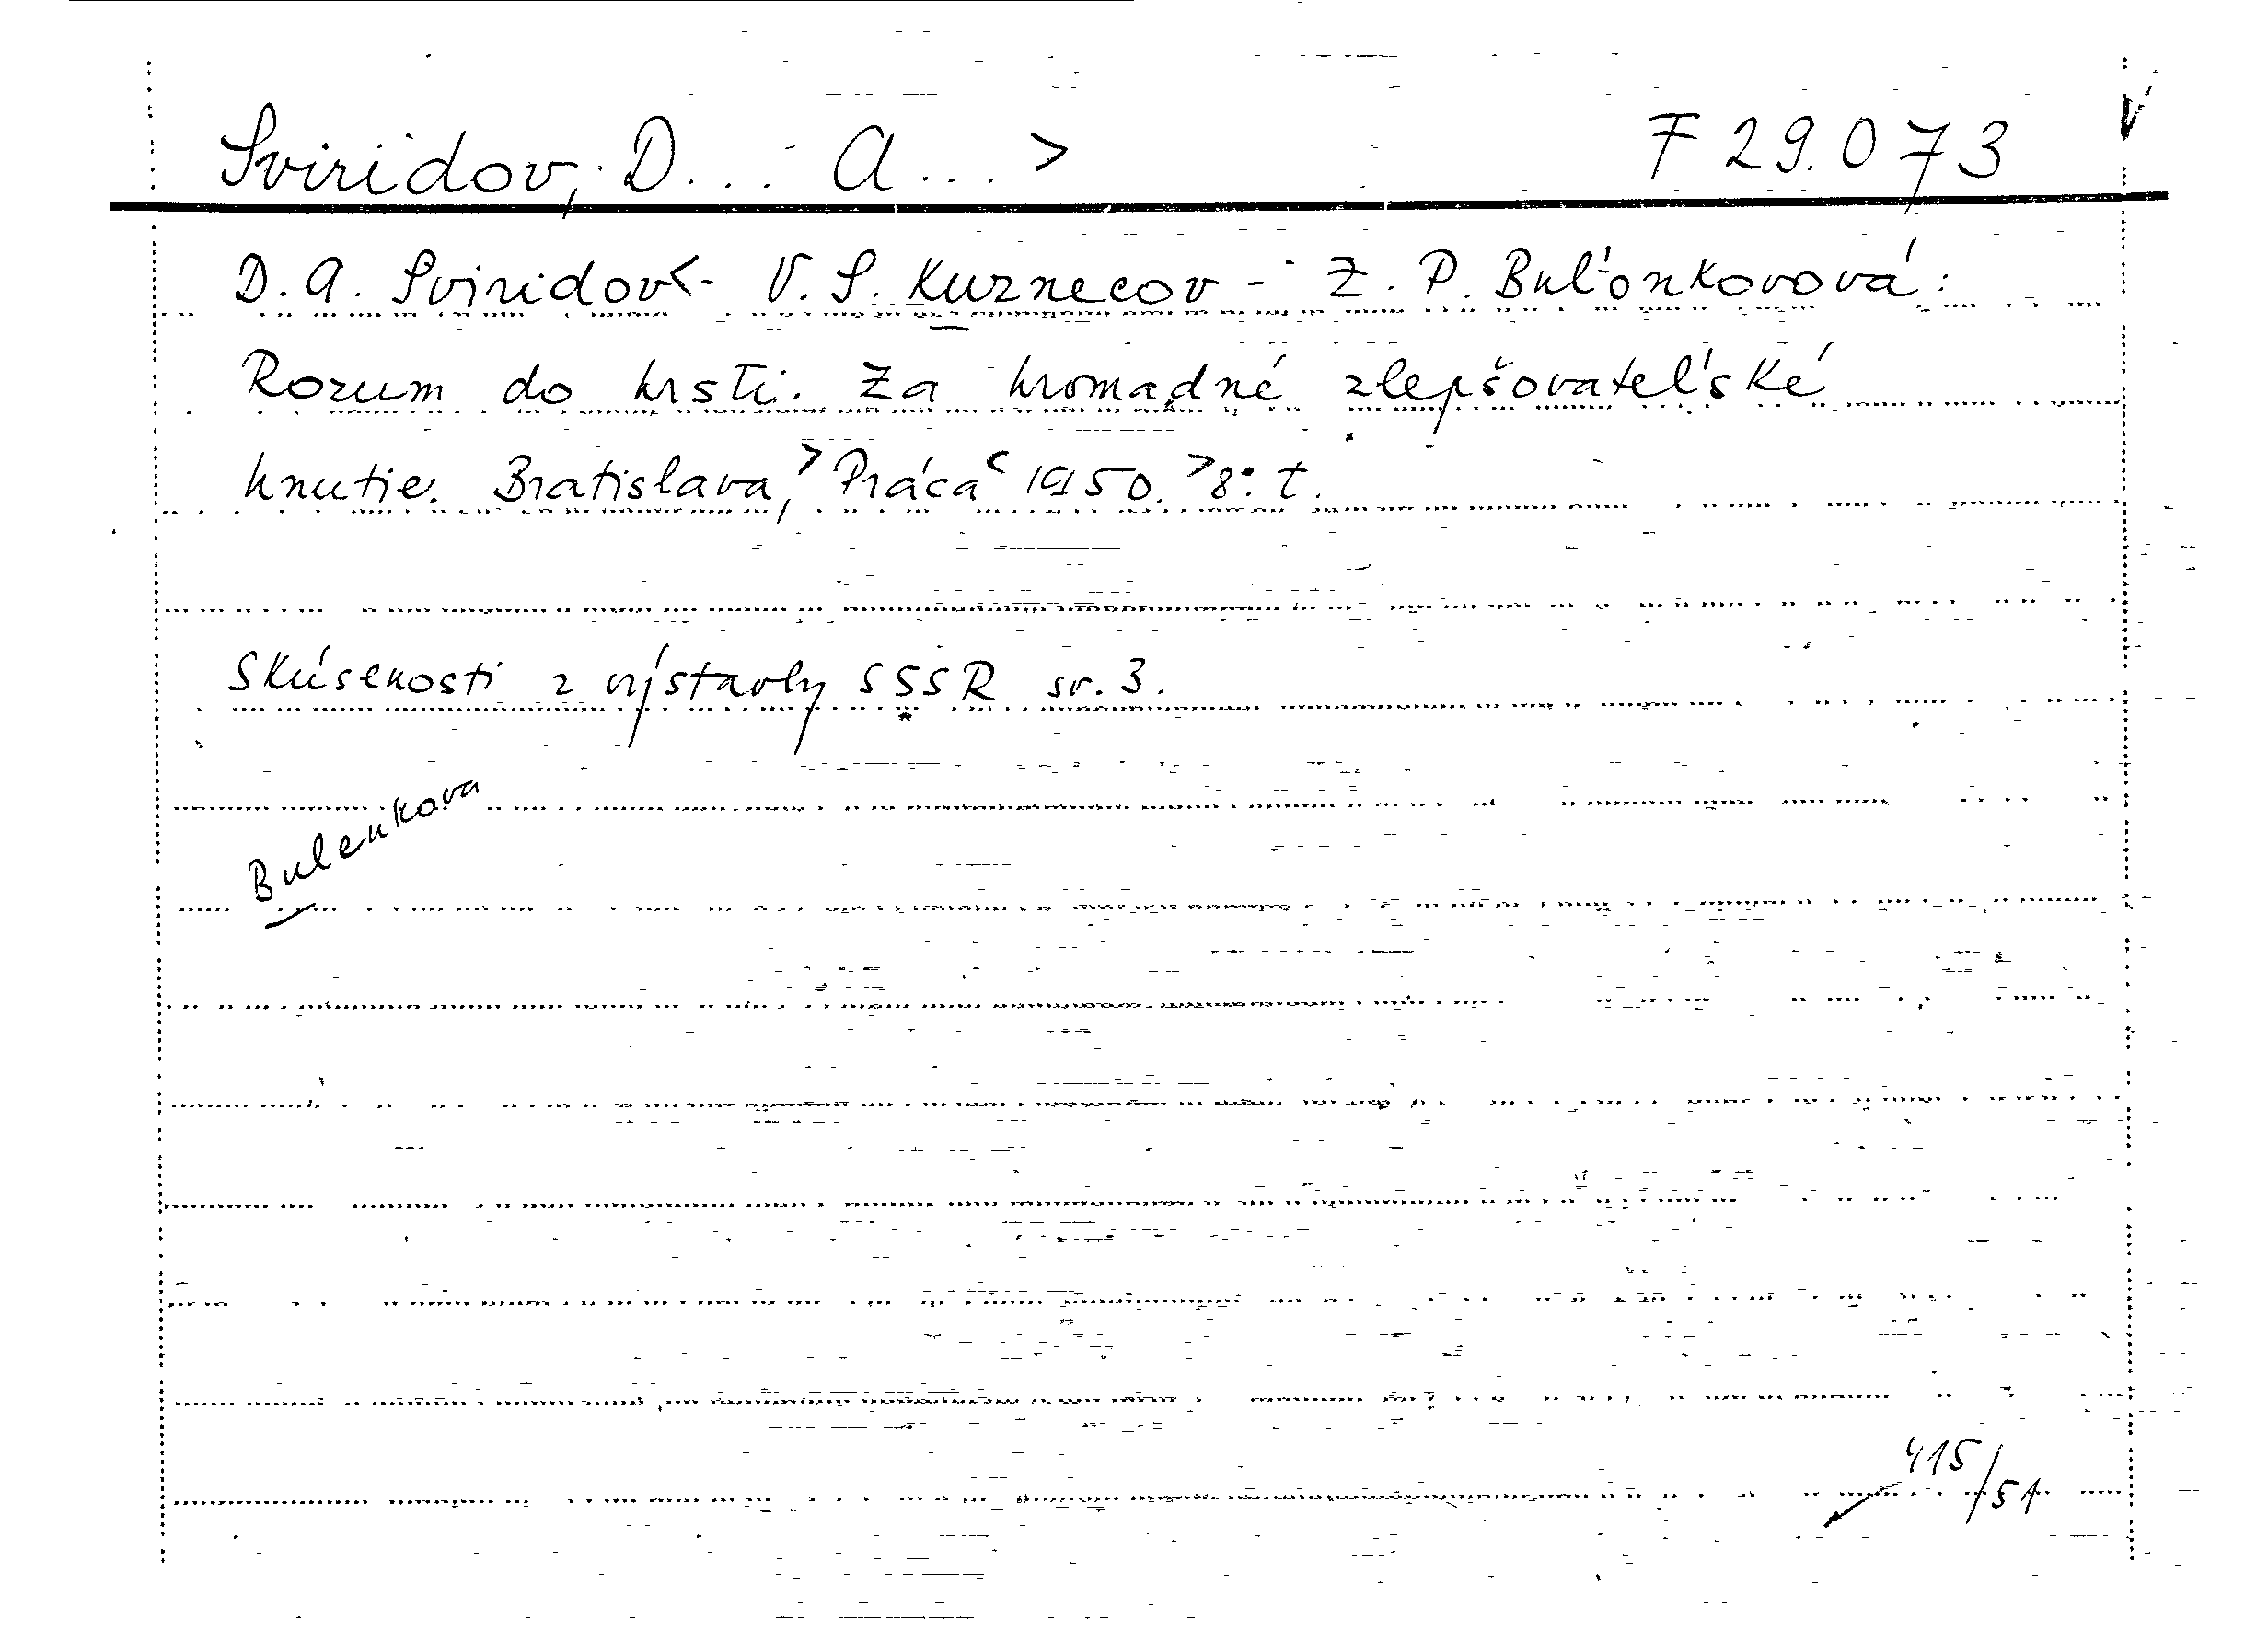 Sviridov, D... A... > F 29.073
D. A. Sviridov<- V. S. Kuznecov - Z. P. Buľonkovová:
Rozum do hrsti. Za hromadné zlepšovateľské
hnutie. Bratislava, >Práca< 1950. >8°. t.
Skúsenosti z výstavby SSSR sv. 3.
Bulenkova
415/51